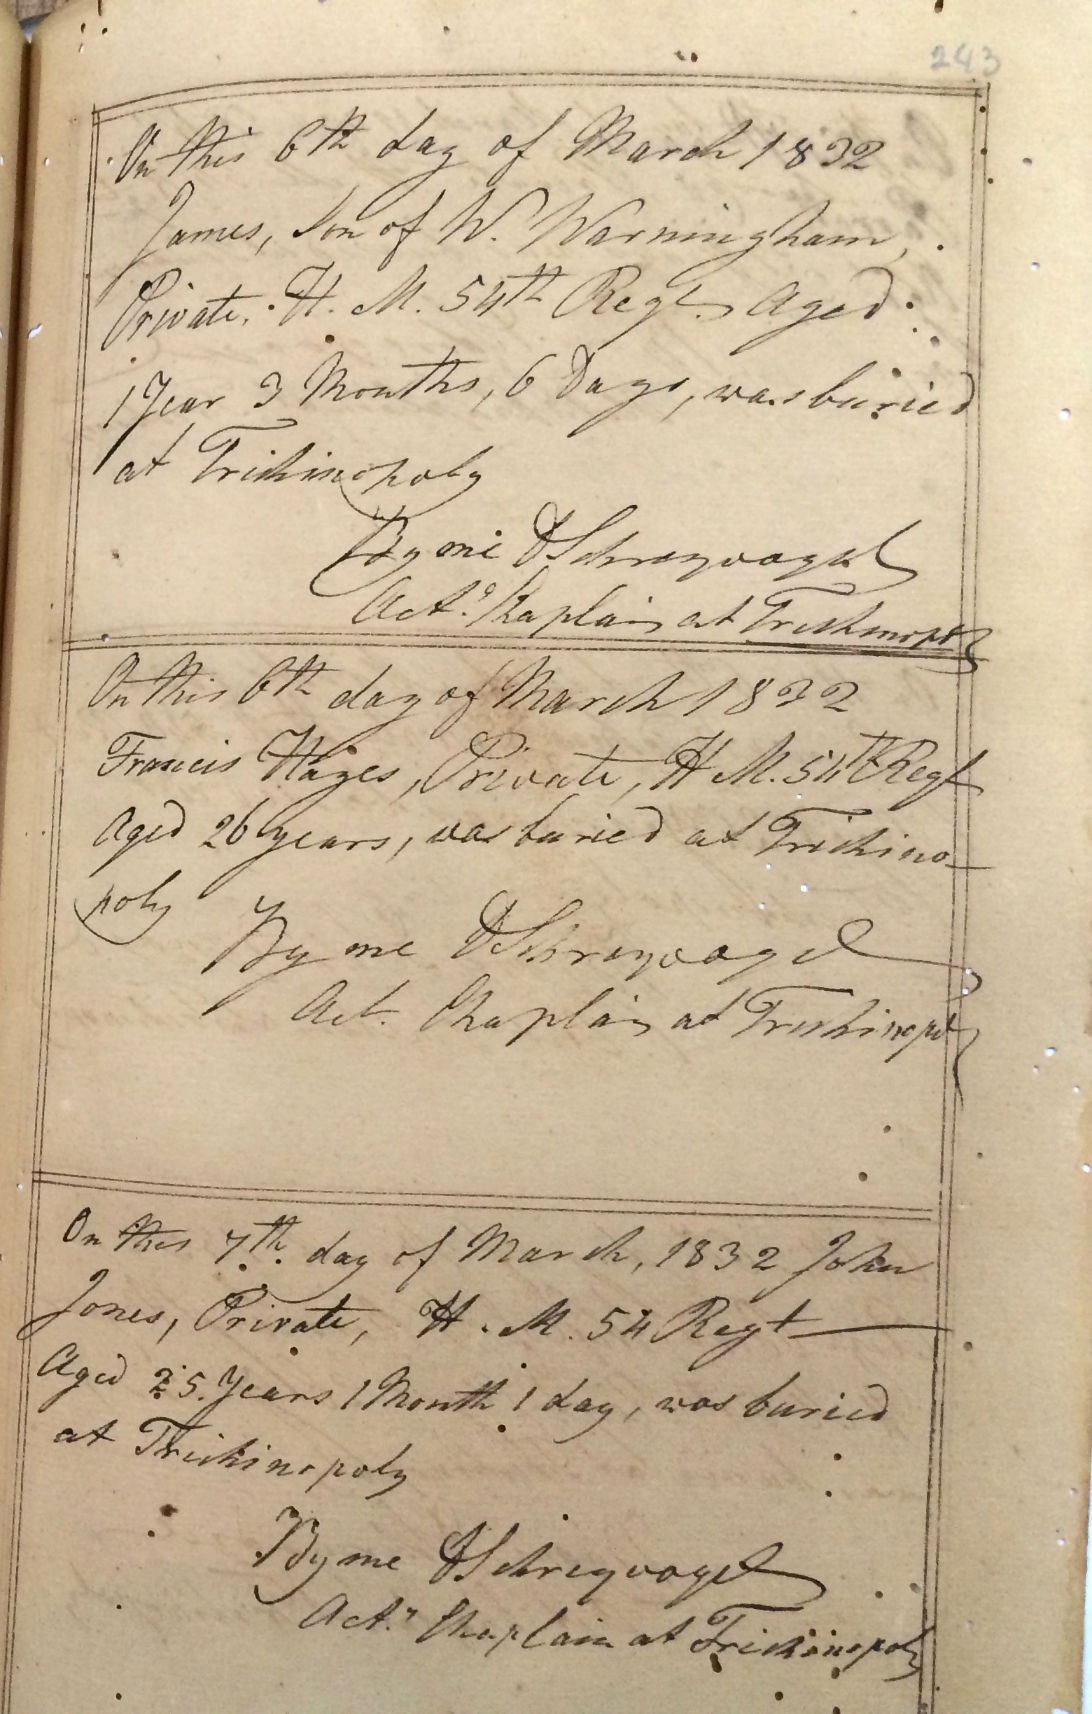 243
On this 6th day of March 1832
James, Son of W. Warmingham,
Private, H. M. 54th Regt. Aged
1 Year 3 Months, 6 Days, was buried
at Trichinopoly
By me D Schreyvogel
Act.g Chaplain at Trichinopoly
On this 6th day of March 1832
Francis Hayes, Private, H M. 54th Regt
Aged 26 years, was buried at Trichino-
poly
By me D Schreyvogel
Act. Chaplain at Trichinopoly
On this 7th day of March, 1832 John
Jones, Private, H. M. 54 Regt
Aged 25 Years 1 Month 1 day, was buried
at Trichinopoly
By me D Schreyvogel
Act.g Chaplain at Trichinopoly